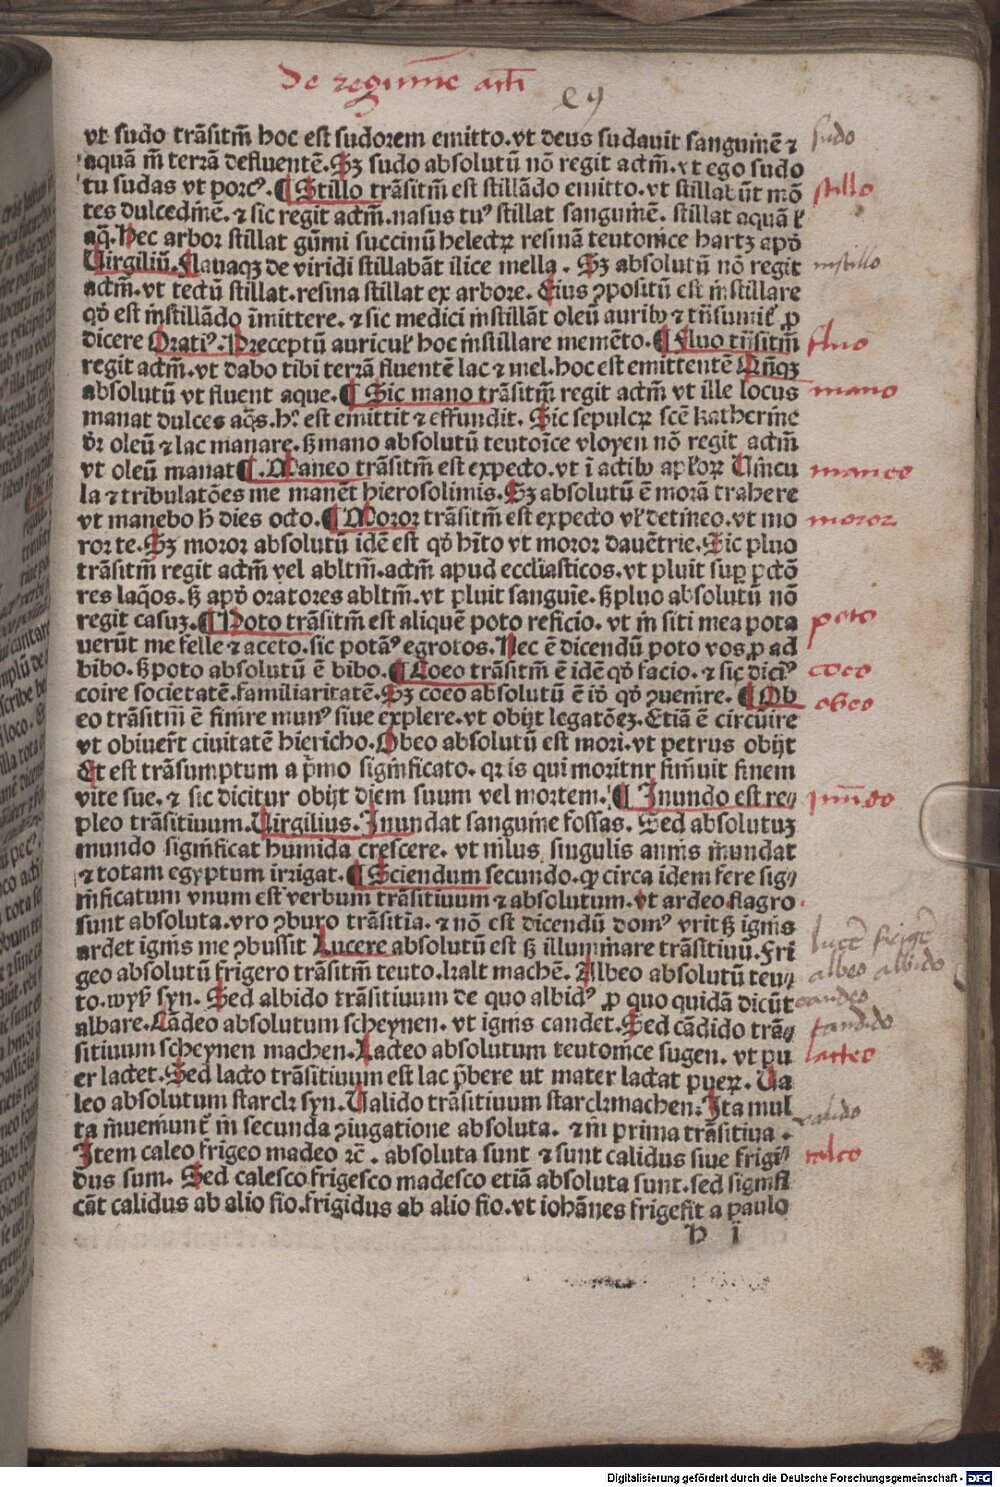 De regimine acti
vt sudo trãsitm̃ hoc est sudorem emitto. vt deus sudauit sanguinẽ ⁊
aquã m̃ terrã defluentẽ. Sꝫ sudo absolutũ nõ regit actm̃. vt ego sudo
tu sudas vt porcꝰ. ¶ Stillo trãsitm̃ est stillãdo emitto. vt stillabũt mõ
tes dulcedinẽ. ⁊ sic regit actm̃. nasus tuꝰ stillat sanguinẽ. stillat aquã
aq̃. Hec arbor stillat gũmi succinũ helectꝝ resinã teutonice hartz apð
Virgiliũ. Flauaqꝫ de viridi stillabãt ilice mella. Sꝫ absolutũ nõ regit
actm̃. vt tectũ stillat. resina stillat ex arbore. Eius ꝯpositũ est instillare
qð est instillãdo ĩmittere. ⁊ sic medici instillãt oleũ auribꝰ ⁊ trãsumit̃ ꝓ
dicere Oratiꝰ. Preceptũ auricul̃ hoc instillare memẽto. ¶ Fluo trãsitm̃
regit actm̃. vt dabo tibi terrã fluentẽ lac ⁊ mel. hoc est emittentẽ Qñqꝫ
absolutũ vt fluent aque. ¶ Sic mano trãsitm̃ regit actm̃ vt ille locus
manat dulces aq̃s. hᵒ est emittit ⁊ effundit. Sic sepulcꝝ scẽ katherine
ðr oleũ ⁊ lac manare. ꝫ mano absolutũ teutoĩce vloyen nõ regit actm̃
vt oleũ manat ¶ . Maneo trãsitm̃ est expecto. vt ĩ actibꝰ apl̃oꝝ Vincu
la ⁊ tribulatões me manẽt hierosolimis. Sꝫ absolutũ ẽ morã trahere
vt manebo h̃ dies octo. ¶ Moror trãsitm̃ est expecto vl̃ detineo. vt mo
ror te. Sꝫ moror absolutũ idẽ est qð hĩto vt moror dauẽtrie. Sic pluo
trãsitm̃ regit actm̃ vel abltm̃. actm̃ apud ecclĩasticos. vt pluit suꝑ pctõ
res laq̃os. ꝫ apð oratores abltm̃. vt pluit sanguĩe. ꝫ pluo absolutũ nõ
regit casuꝫ. ¶ Poto trãsitm̃ est aliquẽ poto reficio. vt in siti mea pota
uerũt me felle ⁊ aceto. sic potãꝰ egrotos. Nec ẽ dicendũ poto vos ꝓ ad
bibo. ꝫ poto absolutũ ẽ bibo. ¶ Coeo trãsitm̃ ẽ idẽ qð facio. ⁊ sic dicĩꝰ
coire societatẽ. familiaritatẽ. Sꝫ coeo absolutũ ẽ ið qð ꝯuenire. ¶ Ob
eo trãsitm̃ ẽ finire munꝰ siue explere. vt obijt legatõeꝫ. Etiã ẽ circuire
vt obiuer̃t ciuitatẽ hiericho. Obeo absolutũ est mori. vt petrus obijt
Et est trãsumptum a p̃mo significato. qꝛ is qui moritur finiuit finem
vite sue. ⁊ sic dicitur obijt diem suum vel mortem. ¶ Inundo est re⸗
pleo trãsitiuum. Virgilius. Inundat sanguine fossas. Sed absolutuꝫ
mundo significat humida crescere. vt nilus singulis annis inundat
⁊ totam egyptum irrigat. ¶ Sciendum secundo. ꝙ circa idem fere sig⸗
nificatum vnum est verbum trãsitiuum ⁊ absolutum. vt ardeo flagro
sunt absoluta. vro ꝯburo trãsitia. ⁊ nõ est dicendũ domꝰ vrit ꝫ ignis
ardet ignis me ꝯbussit Lucere absolutũ est ꝫ illuminare trãsitiuũ. Fri
geo absolutũ frigero trãsitm̃ teuto. kalt machẽ. Albeo absolutũ teu⸗
to. wyß syn. Sed albido trãsitiuum de quo albidꝰ ꝓ quo quidã dicũt
albare. Cãdeo absolutum scheynen. vt ignis candet. Sed cãdido trã⸗
sitiuum scheynen machen. Lacteo absolutum teutonice sugen. vt pu
er lactet. Sed lacto trãsitiuum est lac p̃bere ut mater lactat pueꝝ. Va
leo absolutum starck syn. Valido trãsitiuum starckmachen. Ita mul
ta inueniunt̃ in secunda ꝯiugatione absoluta. ⁊ in prima trãsitiua.
Item caleo frigeo madeo ⁊c̃. absoluta sunt ⁊ sunt calidus siue frigi⸗
dus sum. Sed calesco frigesco madesco etiã absoluta sunt. sed signifi
cãt calidus ab alio fio. frigidus ab alio fio. vt iohãnes frigefit a paulo
h i
sudo
stillo
instillo
fluo
mano
maneo
moror
poto
coeo
obeo
inundo
albeo albido
candeo
candido
lacteo
valido
caleo
Digitalisierung gefördert durch die Deutsche Forschungsgemeinschaft - DFG